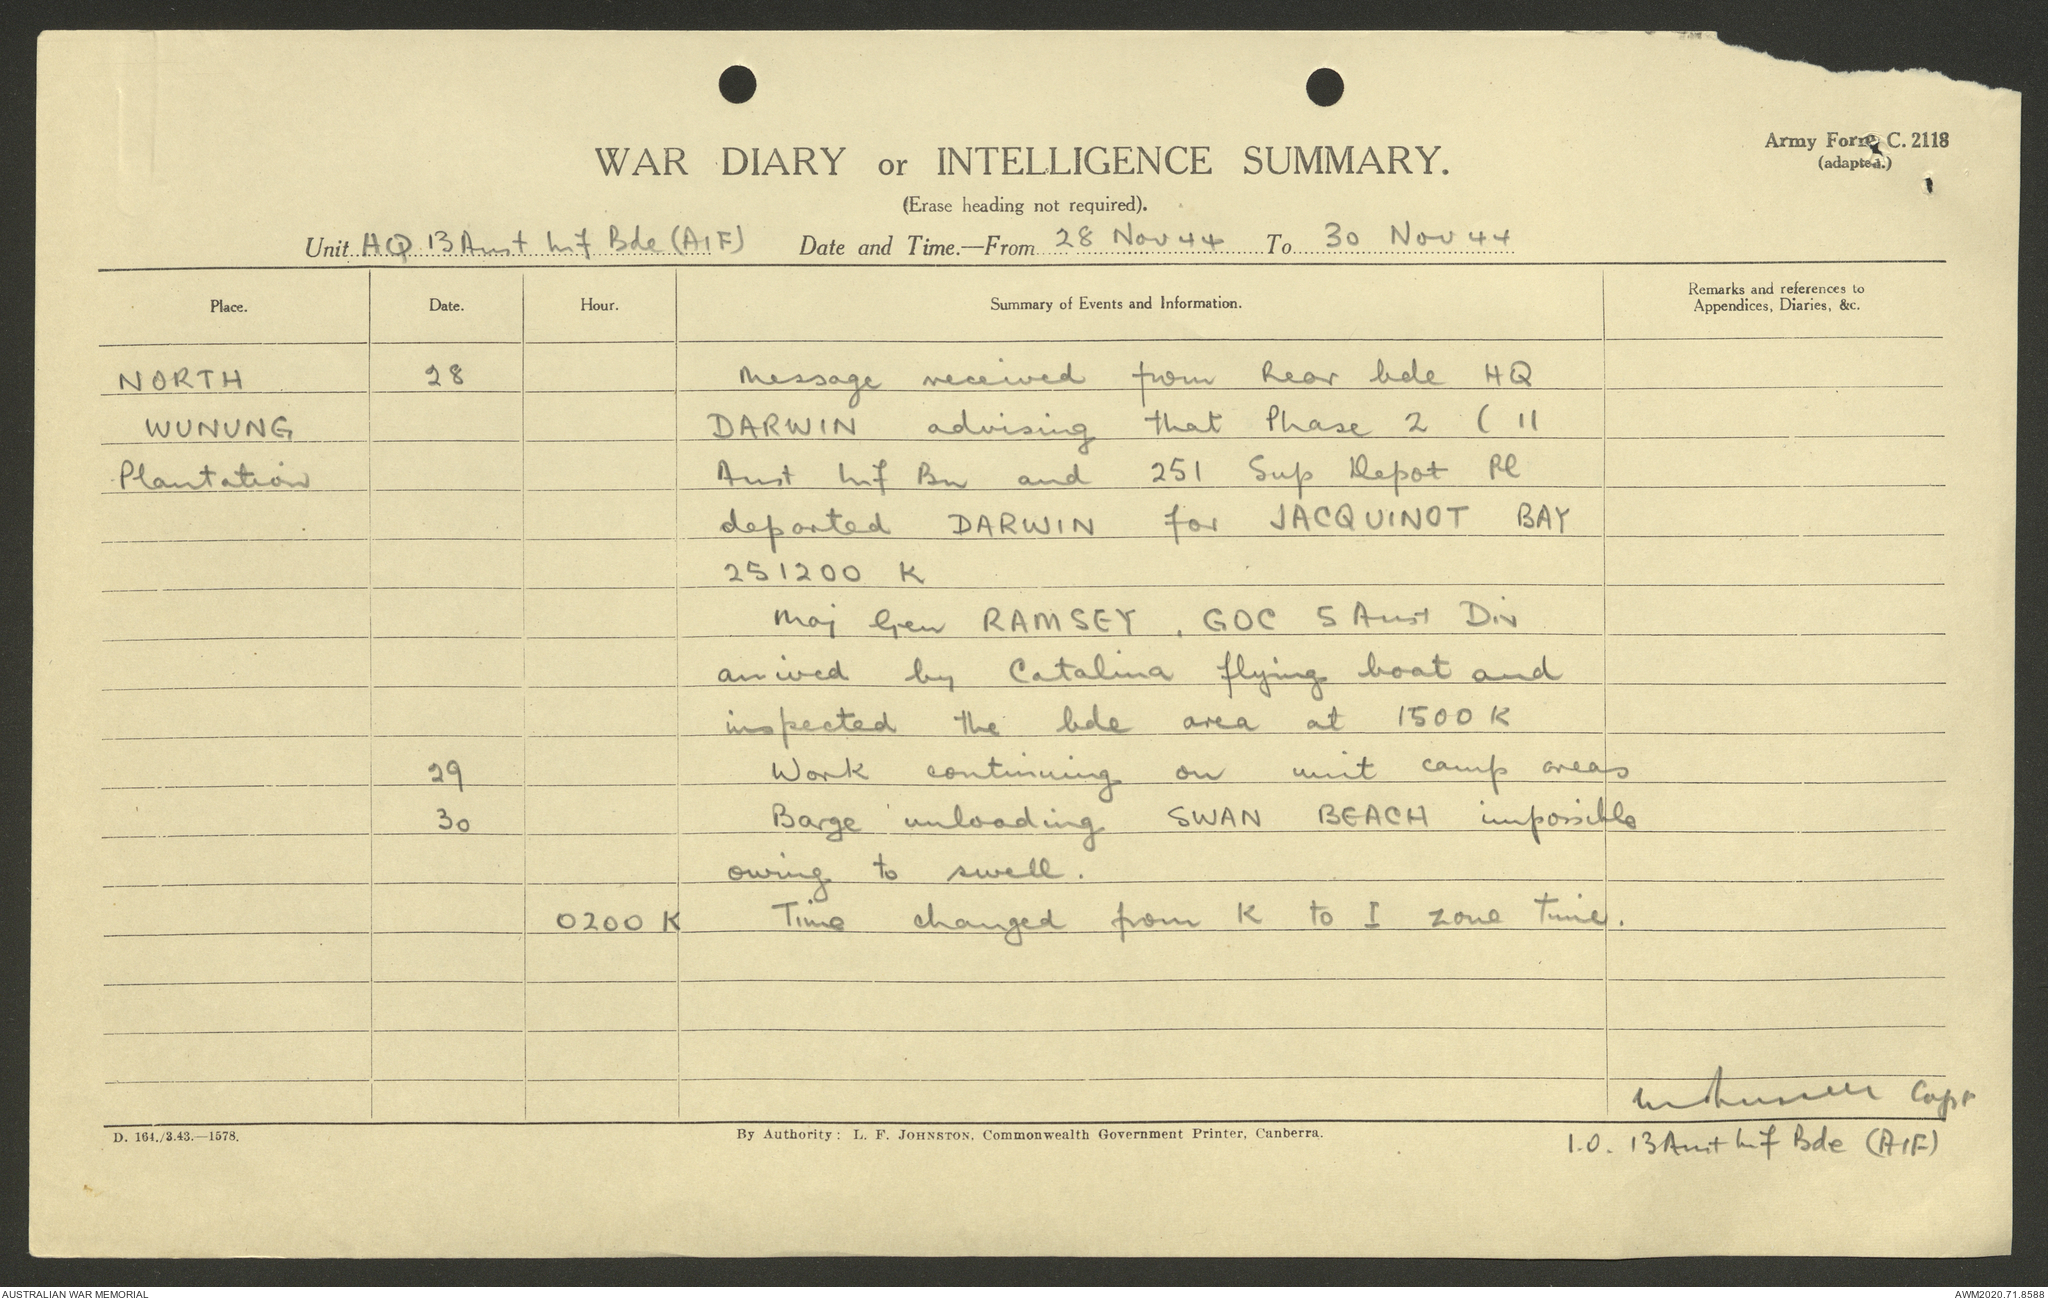 Army Form C. 2118
(adapted.)
WAR DIARY or INTELLIGENCE SUMMARY.
(Erase heading not required).
Unit HQ 13 Aust Inf Bde (AIF) Date and Time.—From 28 Nov 44 To 30 Nov 44
Place. Date. Hour. Summary of Events and Information. Remarks and references to
Appendices, Diaries, &c.
NORTH 28 Message received from Rear bde HQ
WUNUNG DARWIN advising that Phase 2 ( 11
Plantation Aust Inf Bn and 251 Sup Depot Pl
departed DARWIN for JACQUINOT BAY
251200 K
Maj Gen RAMSEY, GOC 5 Aust Div
arrived by Catalina flying boat and
inspected the bde area at 1500 K
29 Work continuing on unit camp areas
30 Barge unloading SWAN BEACH impossible
owing to swell.
0200 K Time changed from K to I zone time.
Capt
I.O. 13 Aust Inf Bde (AIF)
D. 164./3.43.—1578. By Authority: L. F. JOHNSTON, Commonwealth Government Printer, Canberra.
AUSTRALIAN WAR MEMORIAL AWM2020.71.8588